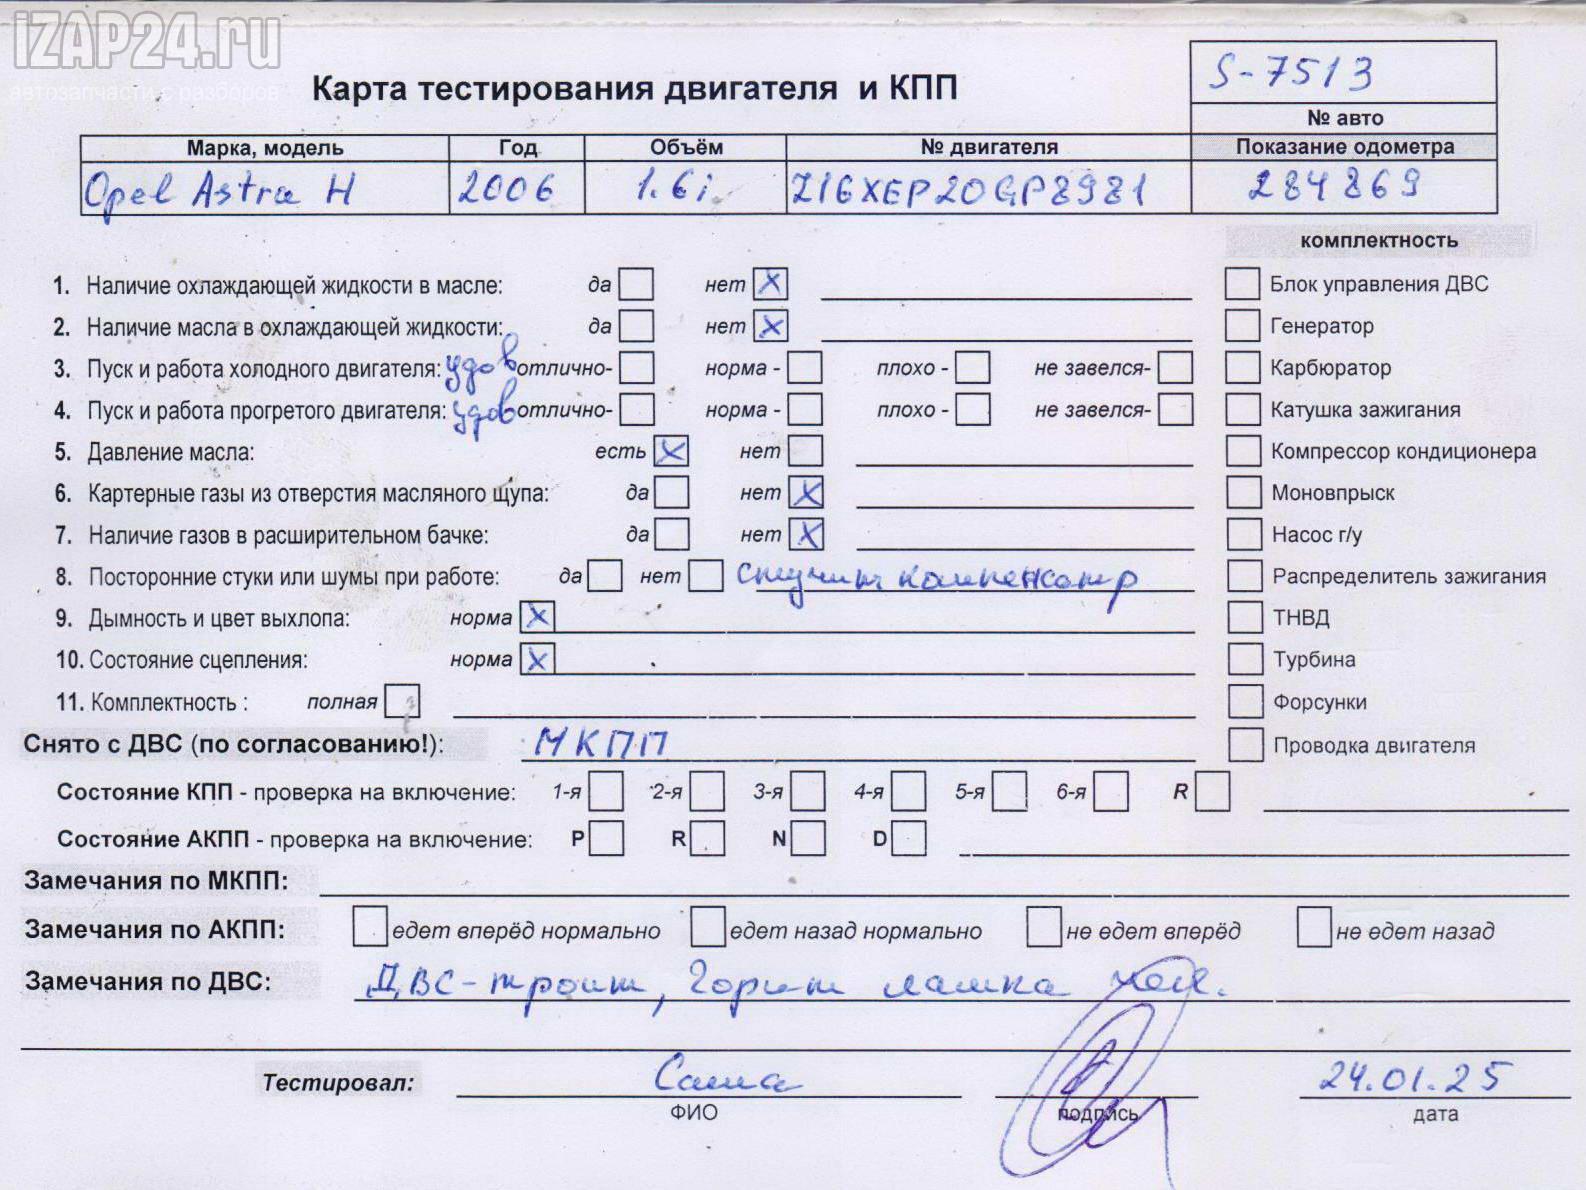 iZAP24.ru
автозапчасти с разборов
S-7513
Карта тестирования двигателя и КПП
№ авто
Марка, модель Год Объём № двигателя Показание одометра
Opel Astra H 2006 1.6i Z16XEP20GP8981 284869
комплектность
1. Наличие охлаждающей жидкости в масле: да нет X Блок управления ДВС
2. Наличие масла в охлаждающей жидкости: да нет X Генератор
3. Пуск и работа холодного двигателя: удов отлично- норма - плохо - не завелся- Карбюратор
4. Пуск и работа прогретого двигателя: удов отлично- норма - плохо - не завелся- Катушка зажигания
5. Давление масла: есть X нет Компрессор кондиционера
6. Картерные газы из отверстия масляного щупа: да нет X Моновпрыск
7. Наличие газов в расширительном бачке: да нет X Насос г/у
8. Посторонние стуки или шумы при работе: да нет стучит компенсатр Распределитель зажигания
9. Дымность и цвет выхлопа: норма X ТНВД
10. Состояние сцепления: норма X Турбина
11. Комплектность : полная Форсунки
Снято с ДВС (по согласованию!): МКПП Проводка двигателя
Состояние КПП - проверка на включение: 1-я 2-я 3-я 4-я 5-я 6-я R
Состояние АКПП - проверка на включение: P R N D
Замечания по МКПП:
Замечания по АКПП: едет вперёд нормально едет назад нормально не едет вперёд не едет назад
Замечания по ДВС: ДВС-троит, горит лампа
Тестировал: Саша 24.01.25
ФИО подпись дата